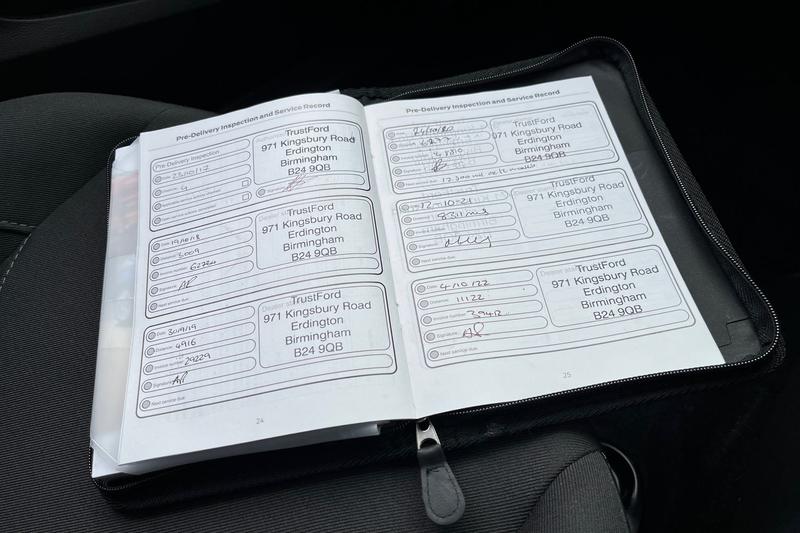 Pre-Delivery Inspection and Service Record
Pre-Delivery Inspection
Date: 23/10/17
Distance: 4
TrustFord
971 Kingsbury Road
Erdington
Birmingham
B24 9QB
Signature:
Date: 19/10/18
Distance: 3009
Invoice number: 62724
Signature: AP
Next service due:
TrustFord
971 Kingsbury Road
Erdington
Birmingham
B24 9QB
Date: 30/9/19
Distance: 4916
Invoice number: 29229
Signature: AP
Next service due:
Dealer stamp
TrustFord
971 Kingsbury Road
Erdington
Birmingham
B24 9QB
24
Pre-Delivery Inspection and Service Record
Date:
Distance:
Invoice number:
Signature:
Next service due: 12,000
TrustFord
971 Kingsbury Road
Erdington
Birmingham
B24 9QB
Date: 12-10-21
Distance: 8311
Signature:
Next service due:
TrustFord
971 Kingsbury Road
Erdington
Birmingham
B24 9QB
Date: 4/10/22
Distance: 11122
Invoice number: 39412
Signature: AP
Next service due:
Dealer stamp
TrustFord
971 Kingsbury Road
Erdington
Birmingham
B24 9QB
25